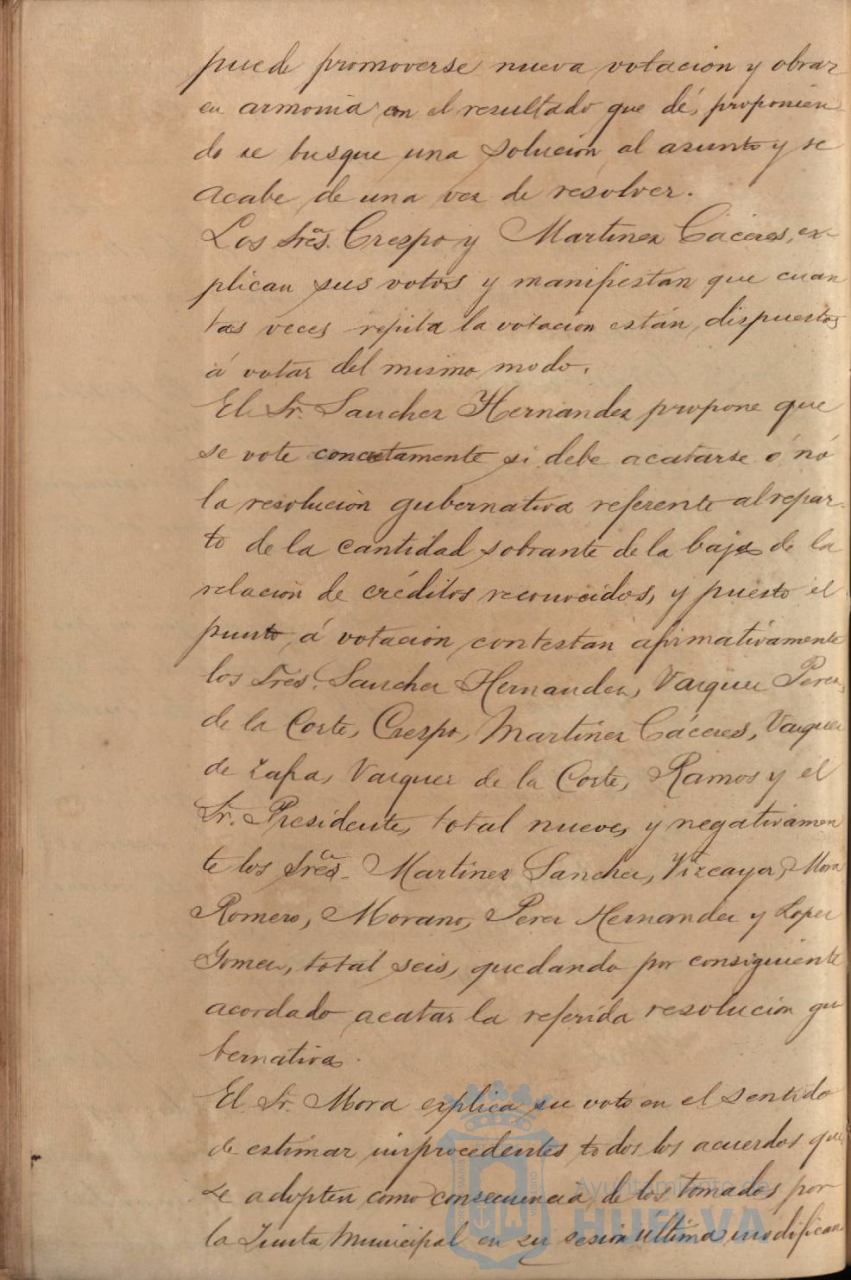 puede promoverse nueva votación y obrar
en armonia con el resultado que dé, proponien-
do se busque una solución al asunto y se
acabe de una vez de resolver.
Los Sres. Crespo y Martinez Cáceres, ex-
plican sus votos y manifiestan que cuan
tas veces repita la votación están dispuestos
á votar del mismo modo.
El Sr. Sanchez Hernandez propone que
se vote concretamente si debe acatarse ó nó
la resolución gubernativa referente al repar-
to de la cantidad sobrante de la baja de la
relación de créditos reconocidos, y puesto el
punto á votación contestan afirmativamente
los Sres. Sanchez Hernandez, Vazquez Perez,
de la Corte, Crespo, Martinez Cáceres, Vazquez
de Zafra, Vazquez de la Corte, Ramos y el
Sr. Presidente, total nueve, y negativamen
te los Sres. Martinez Sanchez, Vizcaya, Mora
Romero, Morano, Perez Hernandez y Lopez
Gomez, total seis, quedando por consiguiente
acordado acatar la referida resolución gu
bernativa.
El Sr. Mora explica su voto en el sentido
de estimar improcedentes todos los acuerdos que
se adopten como consecuencia de los tomados por
la Junta Municipal en su sesión última modifican
Ayuntamiento de
HUELVA